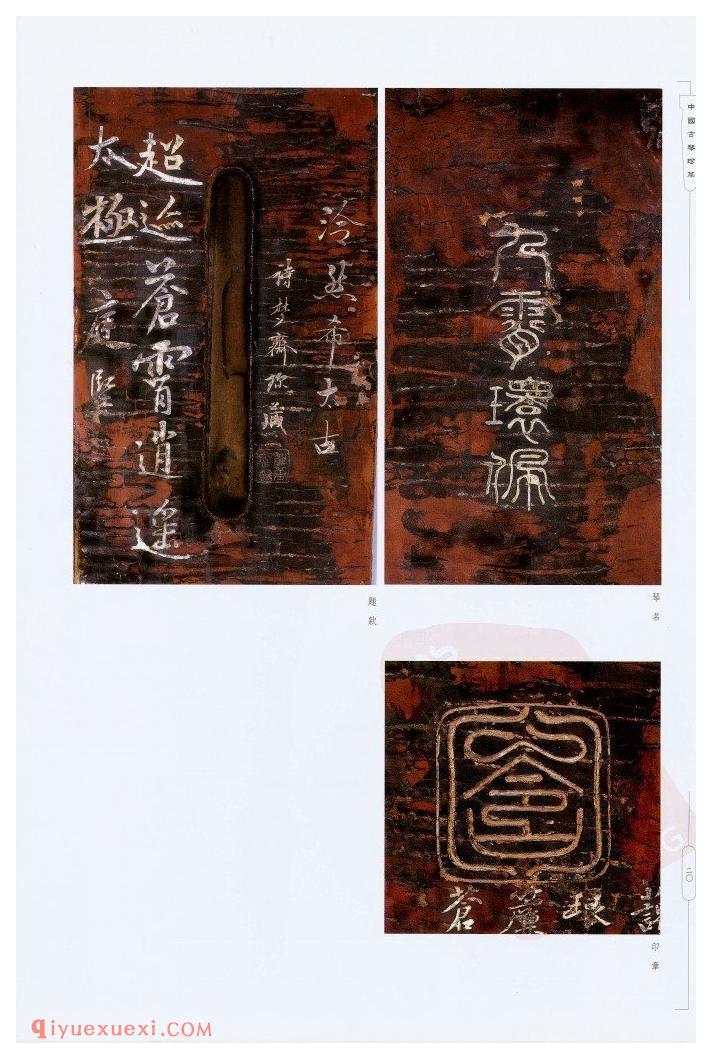 中國古琴珍萃
九霄環佩
琴名
泠然希太古
詩梦齋珍藏
超迹蒼霄逍遥
太極 庭堅
題款
包含
琅
蒼
印章
二〇
qiyuexuexi.COM